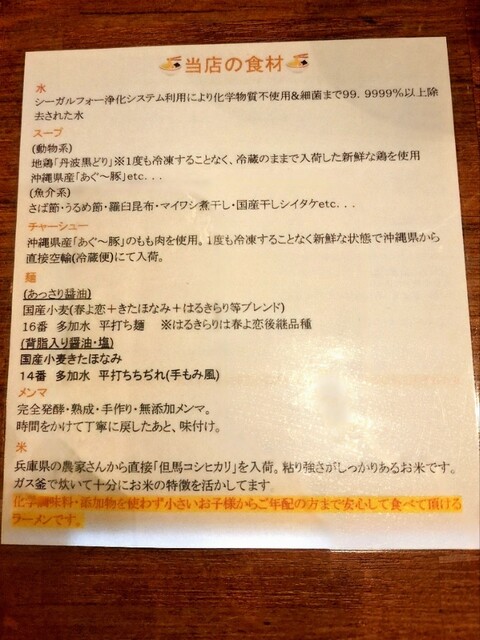 当店の食材
水
シーガルフォー浄化システム利用により化学物質不使用&細菌まで99.9999%以上除
去された水
スープ
(動物系)
地鶏「丹波黒どり」※1度も冷凍することなく、冷蔵のままで入荷した新鮮な鶏を使用
沖縄県産「あぐ～豚」etc...
(魚介系)
さば節・うるめ節・羅臼昆布・マイワシ煮干し・国産干しシイタケetc...
チャーシュー
沖縄県産「あぐ～豚」のもも肉を使用。1度も冷凍することなく新鮮な状態で沖縄県から
直接空輸(冷蔵便)にて入荷。
麺
(あっさり醤油)
国産小麦(春よ恋＋きたほなみ＋はるきらり等ブレンド)
16番 多加水 平打ち麺 ※はるきらりは春よ恋後継品種
(背脂入り醤油・塩)
国産小麦きたほなみ
14番 多加水 平打ちちぢれ(手もみ風)
メンマ
完全発酵・熟成・手作り・無添加メンマ。
時間をかけて丁寧に戻したあと、味付け。
米
兵庫県の農家さんから直接「但馬コシヒカリ」を入荷。粘り強さがしっかりあるお米です。
ガス釜で炊いて十分にお米の特徴を活かしてます
化学調味料・添加物を使わず小さいお子様からご年配の方まで安心して食べて頂ける
ラーメンです。